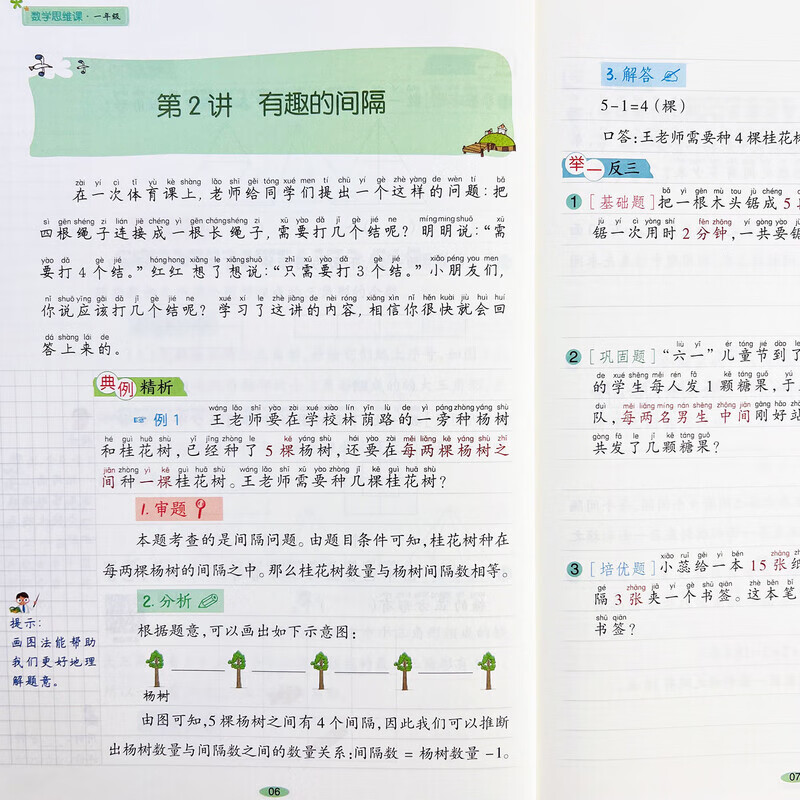 数学思维课·一年级
第2讲 有趣的间隔
zài yí cì tǐ yù kè shàng lǎo shī gěi tóng xué men tí chū yí gè zhè yàng de wèn tí bǎ
在一次体育课上,老师给同学们提出一个这样的问题:把
sì gēn shéng zi lián jiē chéng yì gēn cháng shéng zi xū yào dǎ jǐ gè jié ne míng míng shuō xū
四根绳子连接成一根长绳子,需要打几个结呢?明明说:“需
yào dǎ gè jié hóng hong xiǎng le xiǎng shuō zhǐ xū yào dǎ gè jié xiǎo péng you men
要打4个结。”红红想了想说:“只需要打3个结。”小朋友们,
nǐ shuō yīng gāi dǎ jǐ gè jié ne xué xí le zhè jiǎng de nèi róng xiāng xìn nǐ hěn kuài jiù huì huí
你说应该打几个结呢?学习了这讲的内容,相信你很快就会回
dá shàng lái de
答上来的。
典例精析
☞ 例1
wáng lǎo shī yào zài xué xiào lín yīn lù de yì páng zhòng yáng shù
王老师要在学校林荫路的一旁种杨树
hé guì huā shù yǐ jīng zhòng le kē yáng shù hái yào zài měi liǎng kē yáng shù zhī
和桂花树,已经种了5棵杨树,还要在每两棵杨树之
jiān zhòng yì kē guì huā shù wáng lǎo shī xū yào zhòng jǐ kē guì huā shù
间种一棵桂花树。王老师需要种几棵桂花树?
1.审题
本题考查的是间隔问题。由题目条件可知,桂花树种在
每两棵杨树的间隔之中。那么桂花树数量与杨树间隔数相等。
2.分析
提示:
画图法能帮助
我们更好地理
解题意。
根据题意,可以画出如下示意图:
杨树
由图可知,5棵杨树之间有4个间隔,因此我们可以推断
出杨树数量与间隔数之间的数量关系:间隔数 = 杨树数量 -1。
06
3.解答
5-1=4(棵)
口答:王老师需要种4棵桂花
举一反三
bǎ yì gēn mù tou jù chéng
1 [基础题]把一根木头锯成5
jù yí cì yòng shí fēn zhōng yí gòng yào jù
锯一次用时2分钟,一共要锯
liù yī ér tóng jié dào le
2 [巩固题]“六一”儿童节到了
de xué shēng měi rén fā kē táng guǒ yú
的学生每人发1颗糖果,于
duì měi liǎng míng nán shēng zhōng jiān gāng hǎo
队,每两名男生中间刚好站
gòng fā le jǐ kē táng guǒ
共发了几颗糖果?
xiǎo ruǐ gěi yì běn zhāng
3 [培优题]小蕊给一本15张纸
gé zhāng jiā yí gè shū qiān zhè běn bǐ
隔3张夹一个书签。这本笔
shū qiān
书签?
07